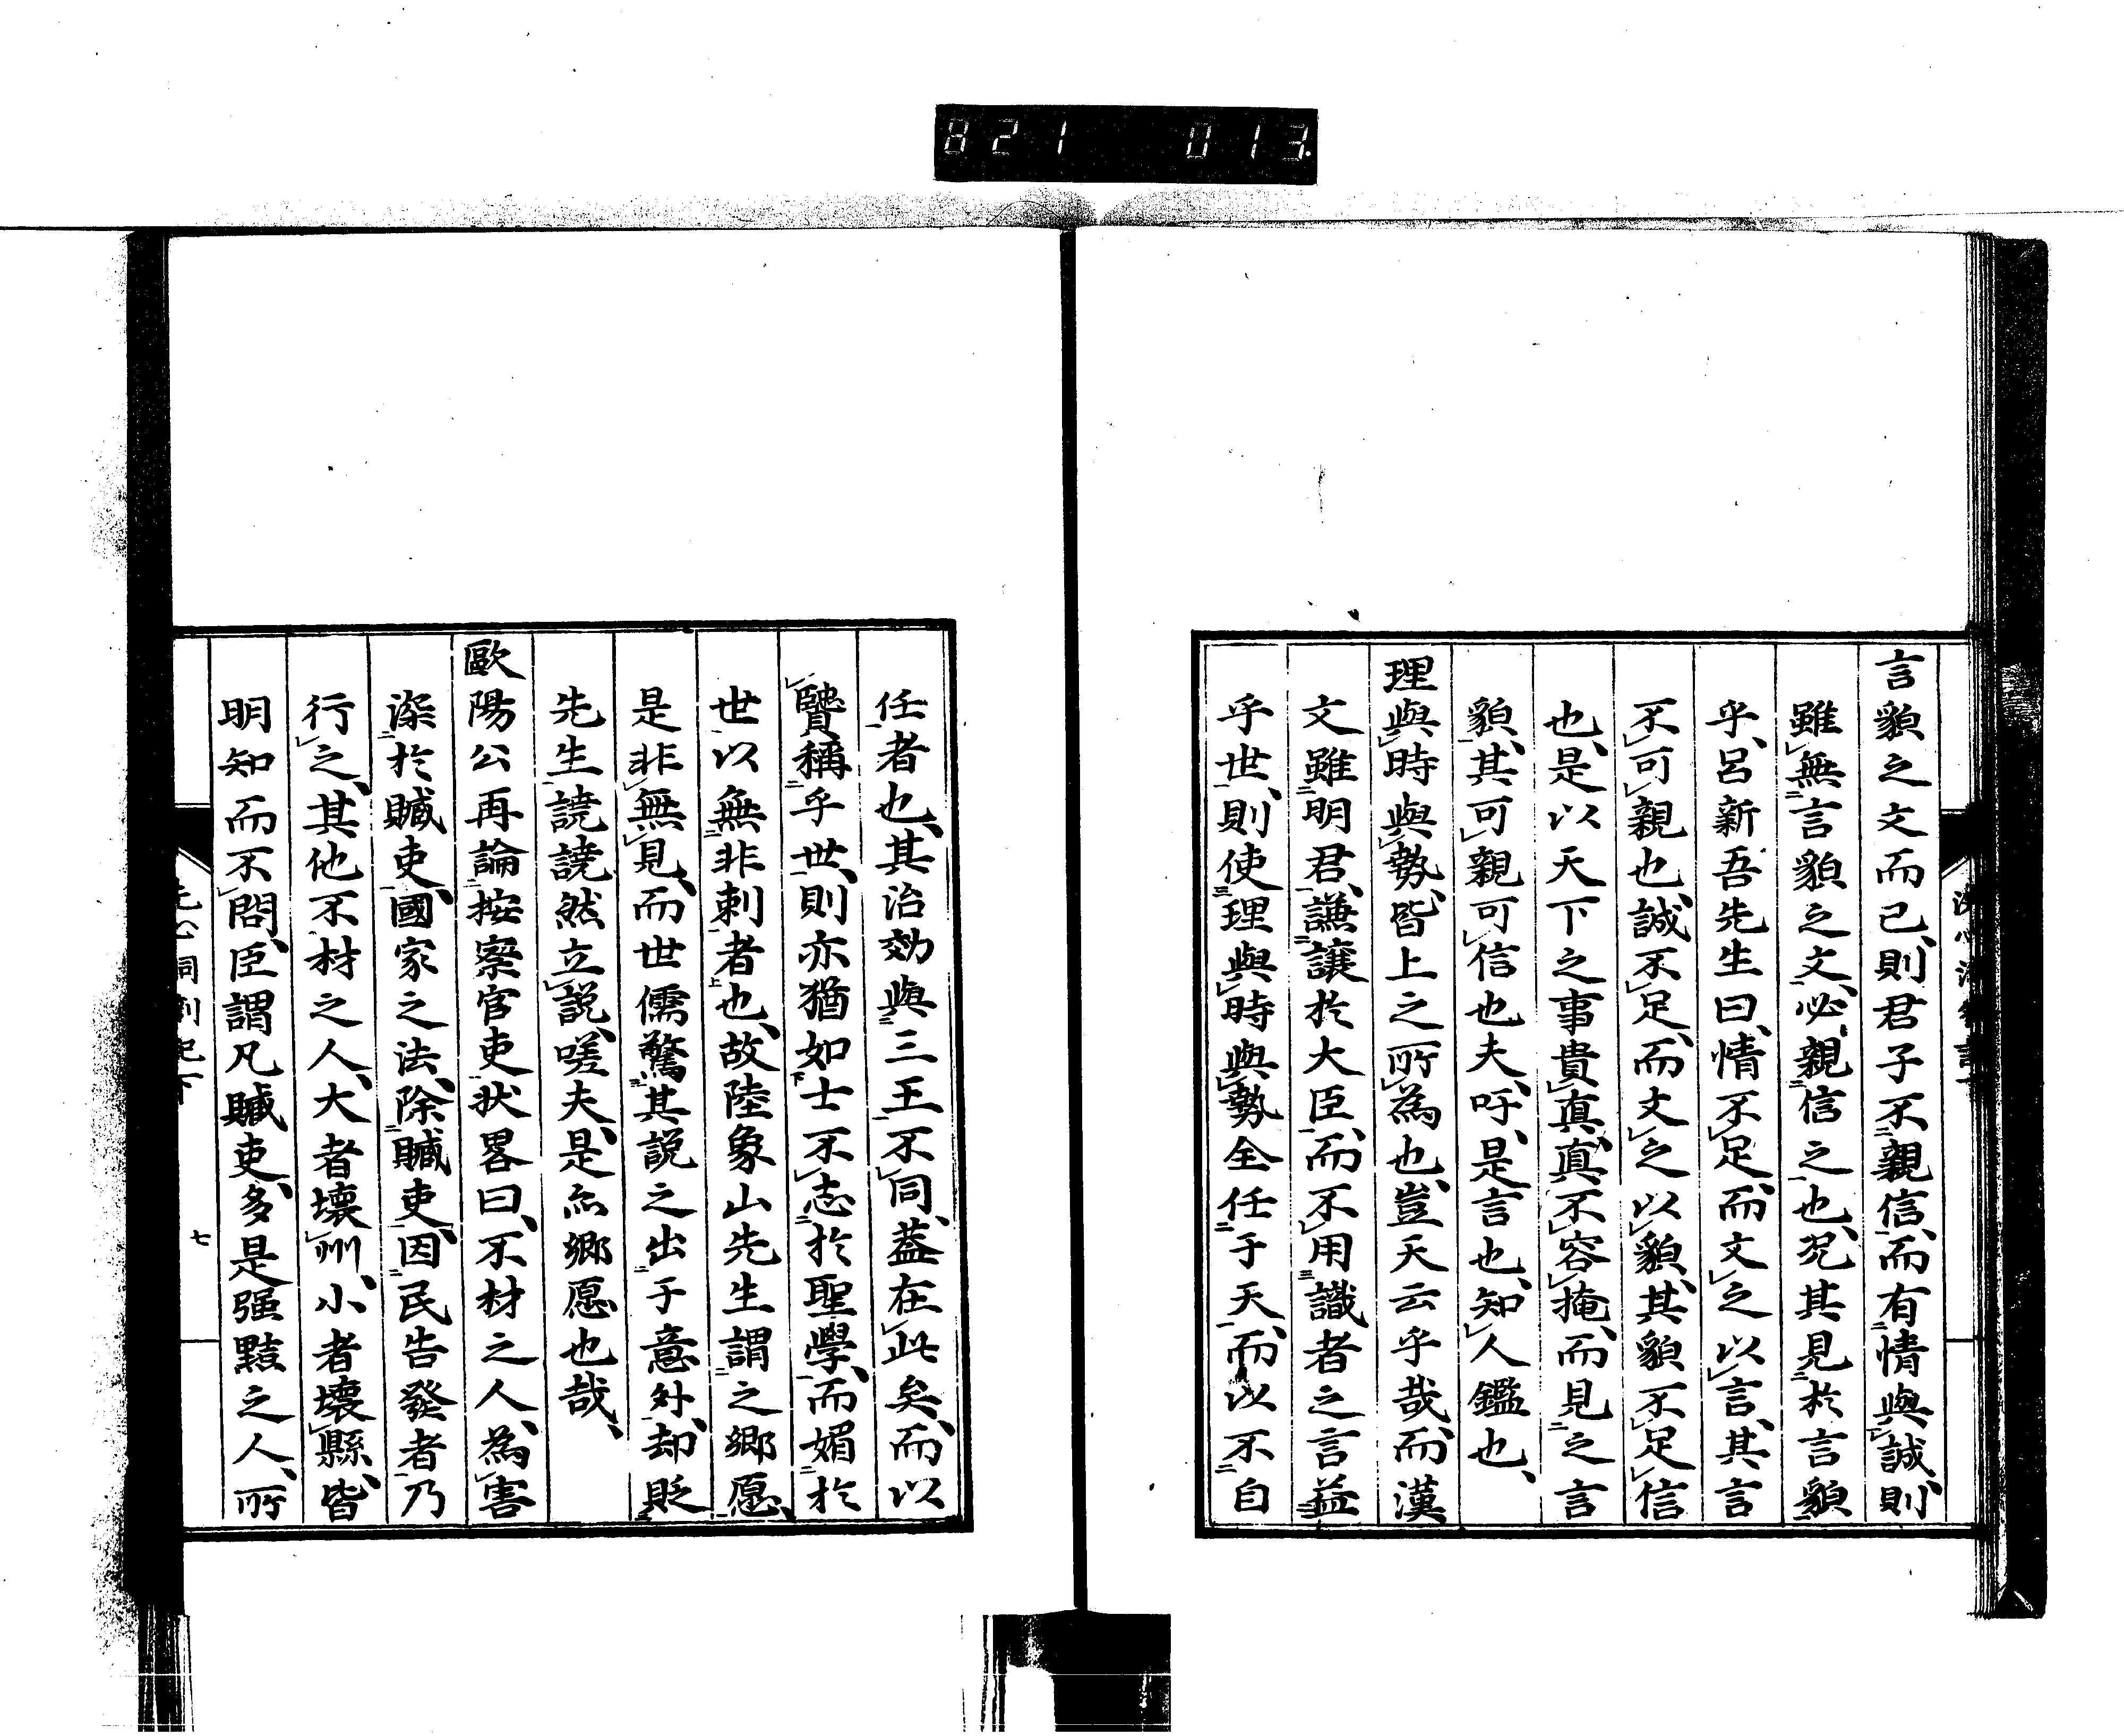 821 013
言貌之文而已、則君子不親信、而有情與誠、則
雖無言貌之文、必親信之也、况其見於言貌
乎、呂新吾先生曰、情不足、而文之以言、其言
不可親也、誠不足、而文之以貌、其貌不足信
也、是以天下之事貴真、真不容掩、而見之言
貌、其可親可信也夫、吁、是言也、知人鑑也、
理與時與勢、皆上之所為也、豈天云乎哉、而漢
文雖明君、謙讓於大臣、而不用識者之言益
乎世、則使理與時與勢全任于天、而以不自
任者也、其治効與三王不同、蓋在此矣、而以
賢稱乎世、則亦猶如士不志於聖學、而媚於
世以無非刺者也、故陸象山先生謂之鄉愿、
是非無見、而世儒驚其説之出于意外、却貶
先生譊譊然立説、嗟夫、是亦鄉愿也哉、
歐陽公再論按察官吏狀畧曰、不材之人、為害
深於贓吏、國家之法、除贓吏、因民告發者乃
行之、其他不材之人、大者壞州、小者壞縣、皆
明知而不問、臣謂凡贓吏、多是强黠之人、所
七